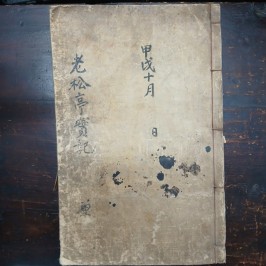 甲戌十月
日
老松亭實記